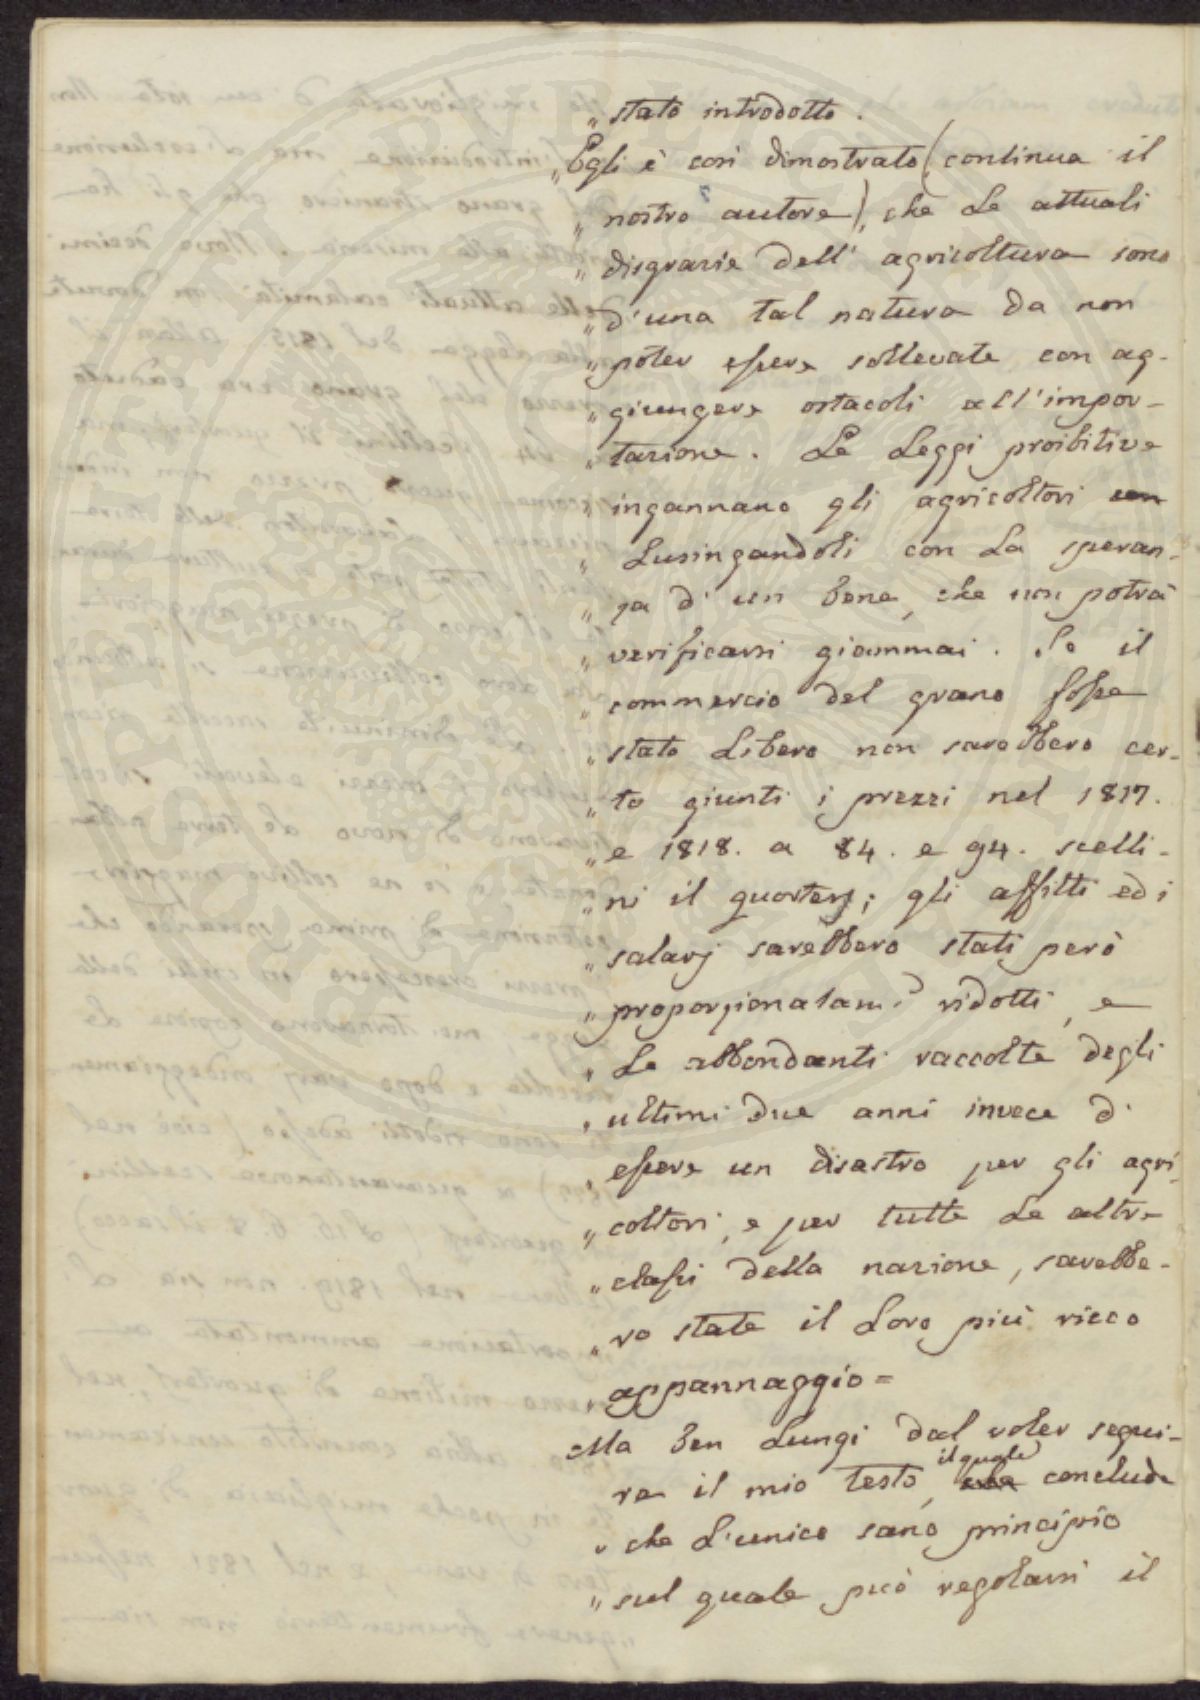 „ stato introdotto.
„ Egli è così dimostrato (continua il
„ nostro autore), che le attuali
„ disgrazie dell' agricoltura sono
„ d'una tal natura da non
„ poter essere sollevate con ag-
„ giungere ostacoli all'impor-
„ tazione. Le Leggi proibitive
„ ingannano gli agricoltori con
„ Lusingandoli con La speran-
„ za d' un bene, che non potrà
„ verificarsi giammai. Se il
„ commercio del grano fosse
„ stato Libero non sarebbero cer-
„ to giunti i prezzi nel 1817.
„ e 1818. a 84. e 94. scelli-
„ ni il quarters; gli affitti ed i
„ salarj sarebbero stati però
„ proporzionatam.e ridotti, e
„ Le abbondanti raccolte degli
„ ultimi due anni invece d'
„ essere un disastro per gli agri-
„ coltori, e per tutte Le altre
„ classi della nazione, sarebbe-
„ ro state il Loro più ricco
„ appannaggio =
Ma ben Lungi dal voler segui-
re il mio testo, che il quale conclude
„ che L'unico sano principio
„ sul quale può regolarsi il